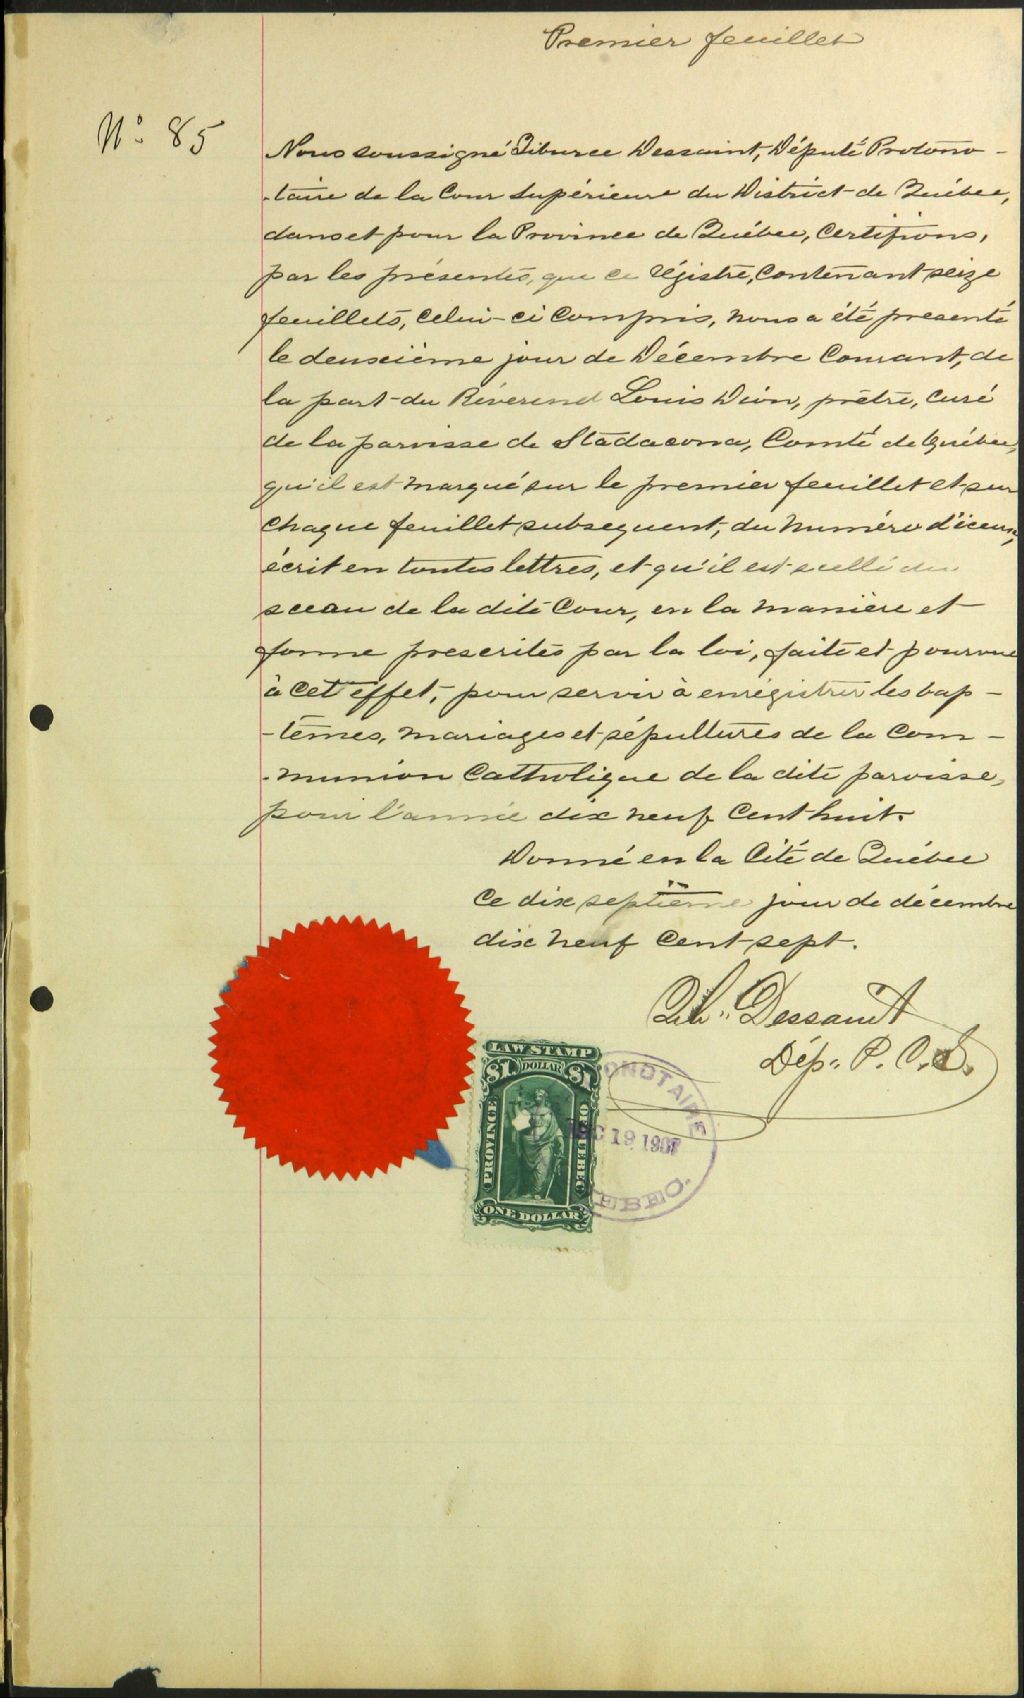 Premier feuillet
No. 85
Nous soussigné Tiburce Dessaint, Député Protono-
-taire de la Cour Supérieure du District de Québec,
dans et pour la Province de Québec, Certifions,
par les présentes, que ce régistre, contenant seize
feuillets, celui-ci compris, nous a été présenté
le deuxième jour de Décembre Courant, de
la part du Révérend Louis Dion, prêtre, curé
de la paroisse de Stadacona, Comté de Québec,
qu'il est marqué sur le premier feuillet et sur
chaque feuillet subsequent, du numéro d'iceux,
écrit en toutes lettres, et qu'il est scellé du
sceau de la dite Cour, en la manière et
forme prescrites par la loi, faite et pourvue
à cet effet, pour servir à enrégistrer les bap-
-têmes, mariages et sépultures de la Com-
-munion Catholique de la dite paroisse,
pour l'année dix neuf cent huit.
Donné en la Cité de Québec
ce dix septième jour de décembre
dix neuf cent sept.
Tib. Dessaint
Dép. P. C. S.
LAW STAMP
$1 DOLLAR $1
PROVINCE OF QUEBEC
ONE DOLLAR
ONOTAIRE
DEC 19 1907
EBEC.